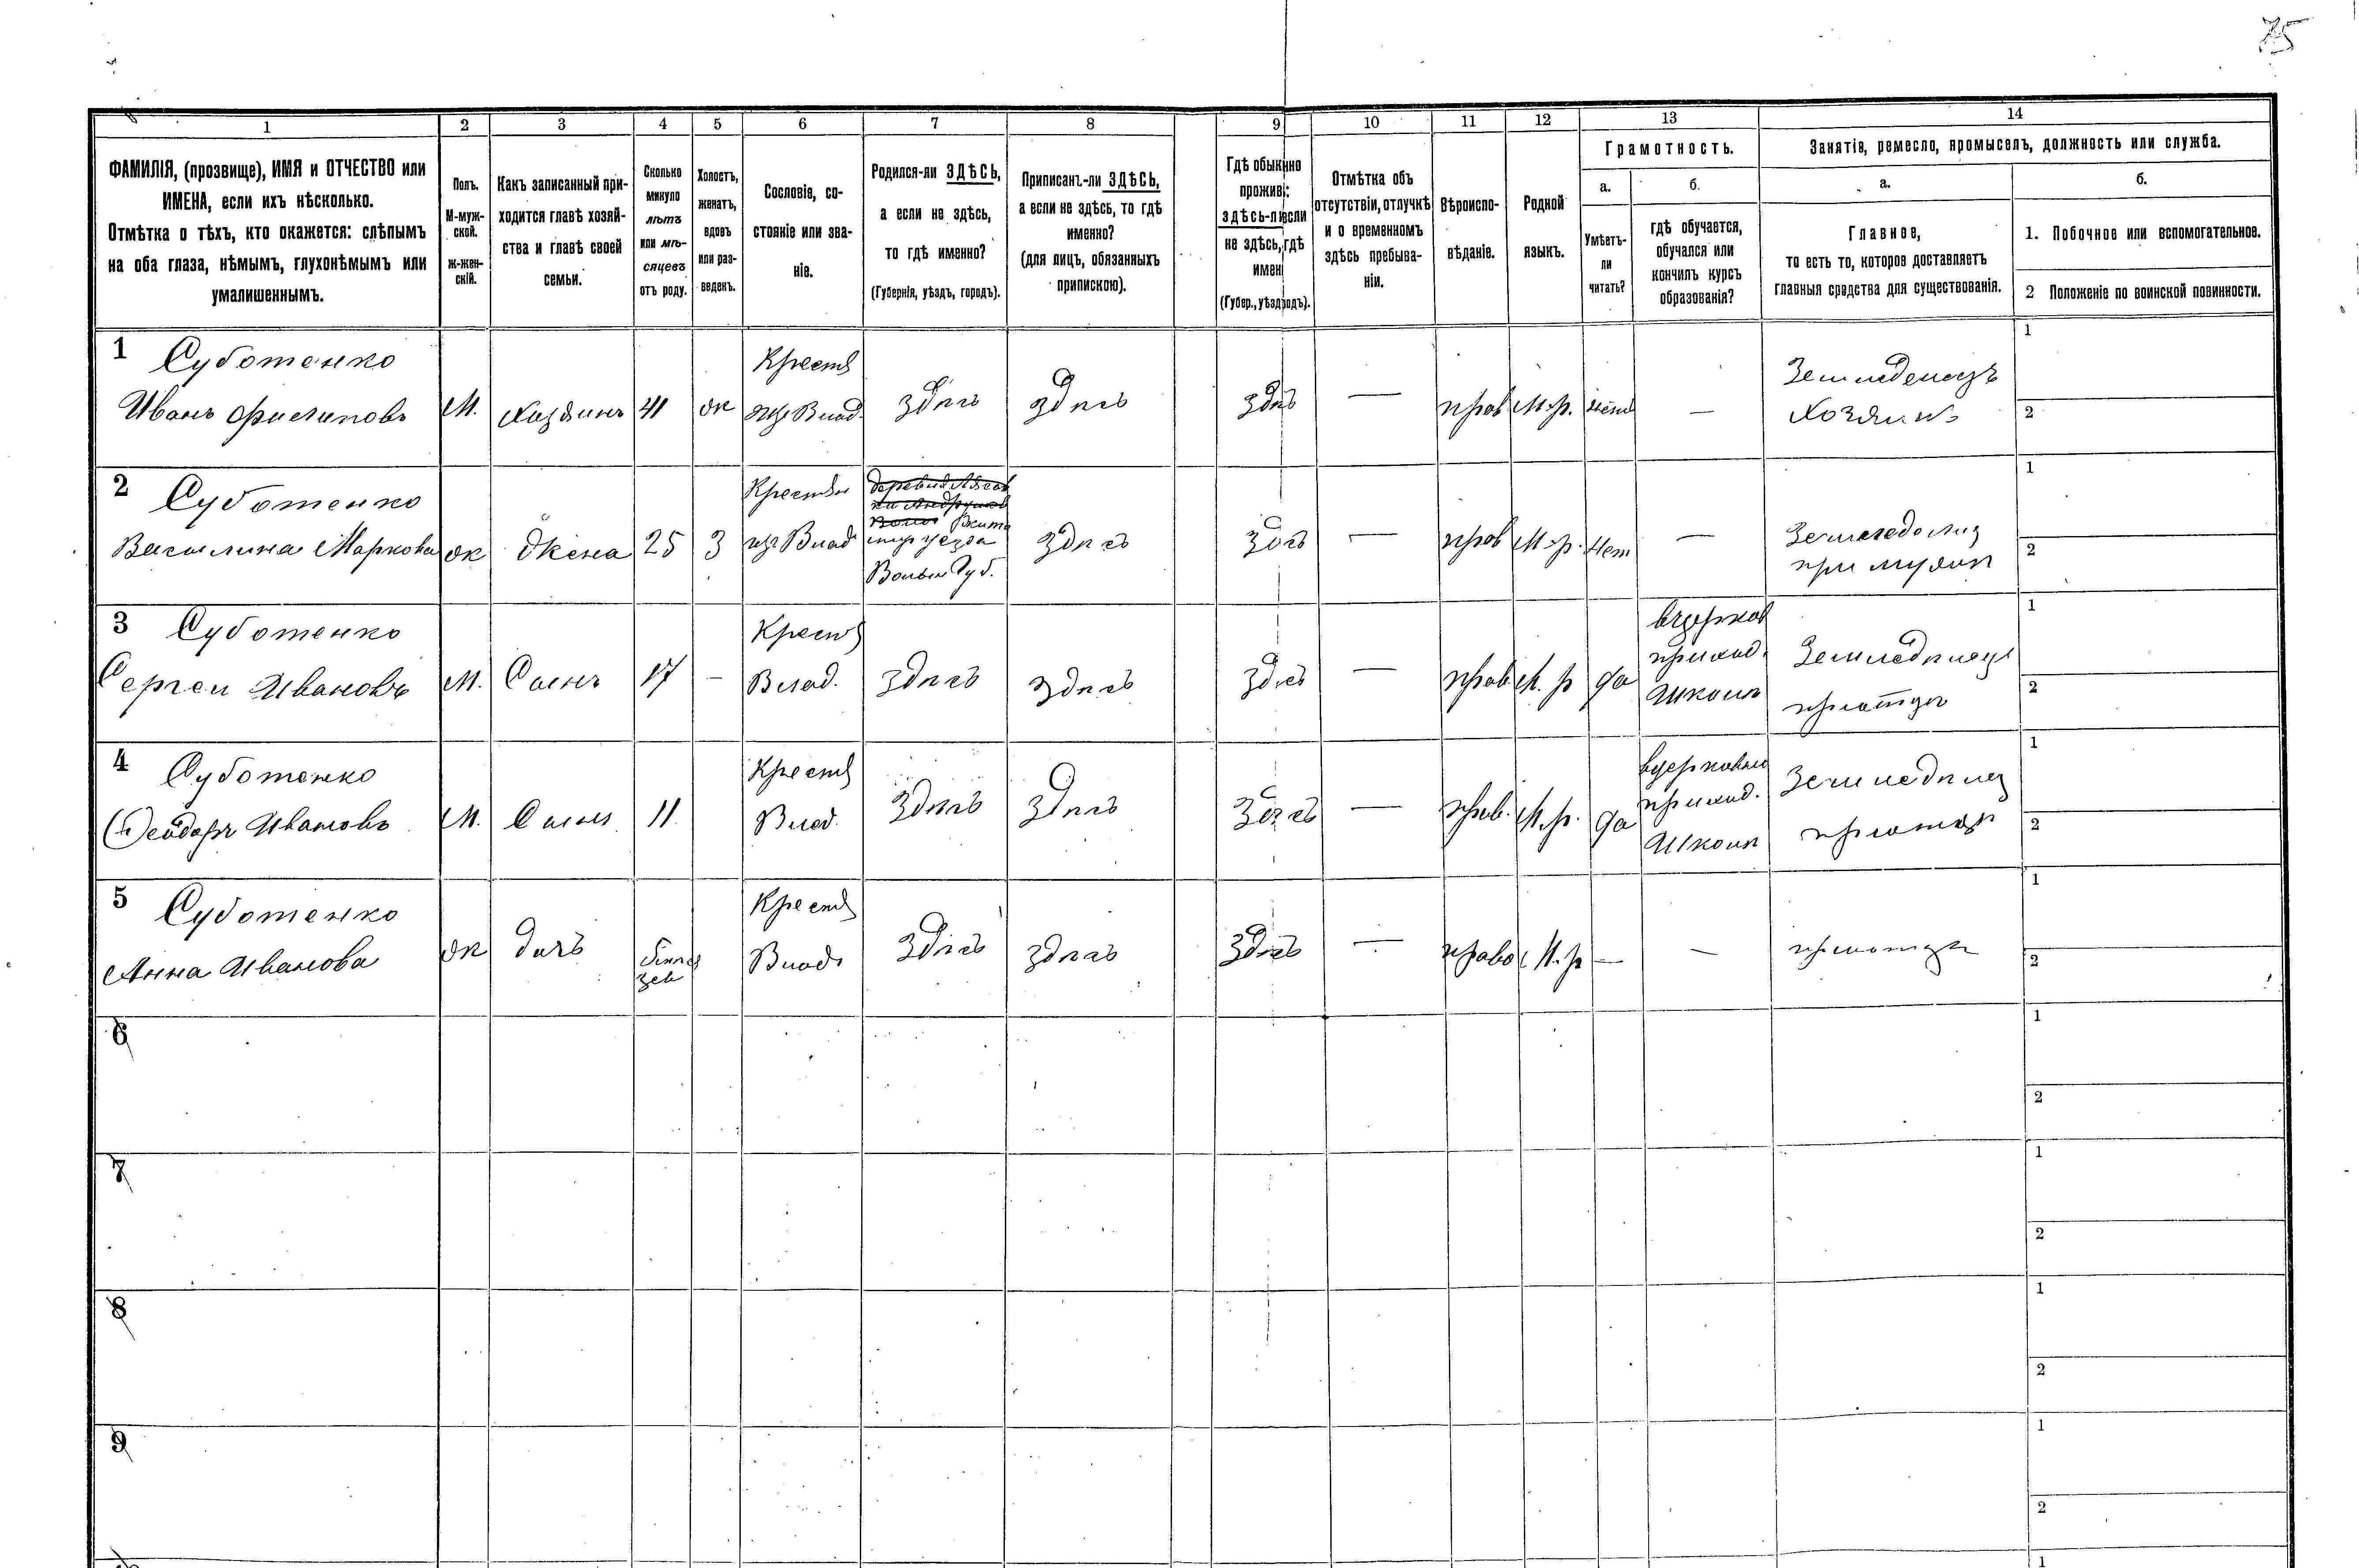 75
1 2 3 4 5 6 7 8 9 10 11 12 13 14
ФАМИЛІЯ, (прозвище), ИМЯ и ОТЧЕСТВО или
ИМЕНА, если ихъ нѣсколько.
Отмѣтка о тѣхъ, кто окажется: слѣпымъ
на оба глаза, нѣмымъ, глухонѣмымъ или
умалишеннымъ.
Полъ.
М-муж-
ской.
Ж-жен-
скій.
Какъ записанный при-
ходится главѣ хозяй-
ства и главѣ своей
семьи.
Сколько
минуло
лѣтъ
или мѣ-
сяцевъ
отъ роду.
Холостъ,
женатъ,
вдовъ
или раз-
веденъ.
Сословіе, со-
стояніе или зва-
ніе.
Родился-ли ЗДѢСЬ,
а если не здѣсь,
то гдѣ именно?
(Губернія, уѣздъ, городъ).
Приписанъ-ли ЗДѢСЬ,
а если не здѣсь, то гдѣ
именно?
(для лицъ, обязанныхъ
припискою).
Гдѣ обыкнно
прожив:
здѣсь-ли если
не здѣсь, гдѣ
имен
(Губер., уѣзд родъ).
Отмѣтка объ
отсутствіи, отлучкѣ
и о временномъ
здѣсь пребыва-
ніи.
Вѣроиспо-
вѣданіе.
Родной
языкъ.
Грамотность.
а.
Умѣетъ-
ли
читать?
б.
гдѣ обучается,
обучался или
кончилъ курсъ
образованія?
Занятіе, ремесло, промыселъ, должность или служба.
а.
Главное,
то есть то, которое доставляетъ
главныя средства для существованія.
б.
1. Побочное или вспомогательное.
2 Положеніе по воинской повинности.
1 Суботенко
Иванъ Филиповъ
М.
Хозяинъ
41
ж
Крест
Влад.
здѣсь
здѣсь
здѣсь
—
прав
М.р.
нет
—
Земледелецъ
Хозяинъ
1
2
2 Суботенко
Василина Маркова
ж
Жена
25
З
Крестьн
Влад
Волын Губ.
здѣсь
здѣсь
—
прав
М.р.
Нет
—
при мужѣ
1
2
3 Суботенко
Сергей Ивановъ
М.
Сынъ
17
—
Крест
Влад.
здѣсь
здѣсь
здѣсь
—
прав
М.р
да
вцерков
приход.
школѣ
Земледѣлецъ
приотцѣ
1
2
4 Суботенко
Ѳеодоръ Ивановъ
М.
Сынъ
11
Крест
Влад.
здѣсь
здѣсь
здѣсь
—
прав.
М.р.
да
вцерковно
приход.
школѣ
Земледѣлец
приотцѣ
1
2
5 Суботенко
Анна Иванова
ж
дочь
Крест
Влад
здѣсь
здѣсь
здѣсь
—
право
М.р
—
—
приотцѣ
1
2
6
1
2
7
1
2
8
1
2
9
1
2
1